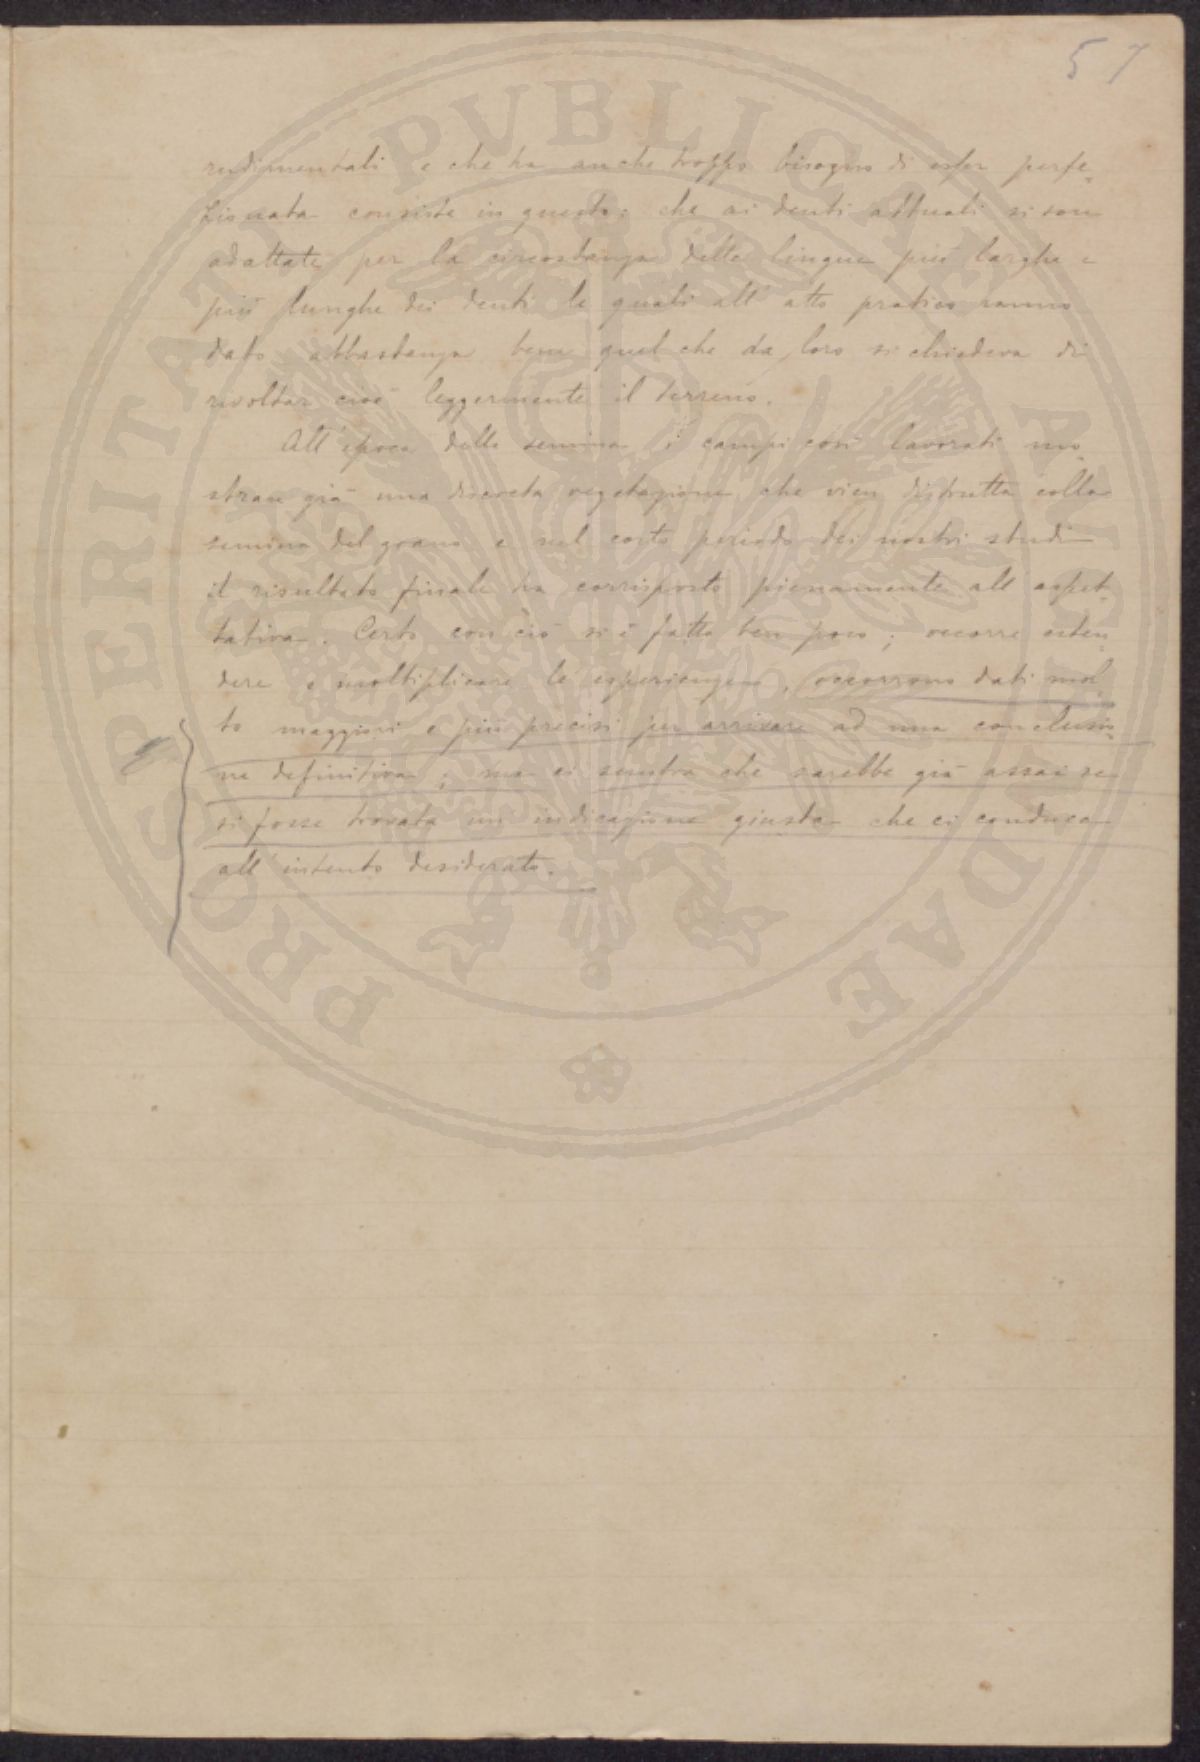 57
rudimentali e che ha anche troppo bisogno di esser perfe-
zionata consiste in questo: che ai denti attuali si son
adattate per la circostanza delle lingue più larghe e
più lunghe dei denti le quali all'atto pratico hanno
dato abbastanza bene quel che da loro si chiedeva di
rivoltar cioè leggermente il terreno.
All'epoca della semina i campi così lavorati mo-
stran già una discreta vegetazione che vien distrutta colla
semina del grano e nel corto periodo dei nostri studi
il risultato finale ha corrisposto pienamente all'aspet-
tativa. Certo con ciò si è fatto ben poco; occorre esten-
dere e moltiplicare le esperienze, occorrono dati mol-
to maggiori e più precisi per arrivare ad una conclusio-
ne definitiva; ma ci sembra che sarebbe già assai se
si fosse trovata un indicazione giusta che ci conduca
all'intento desiderato.
PROSPERITATI PVBLICAE AVGENDAE